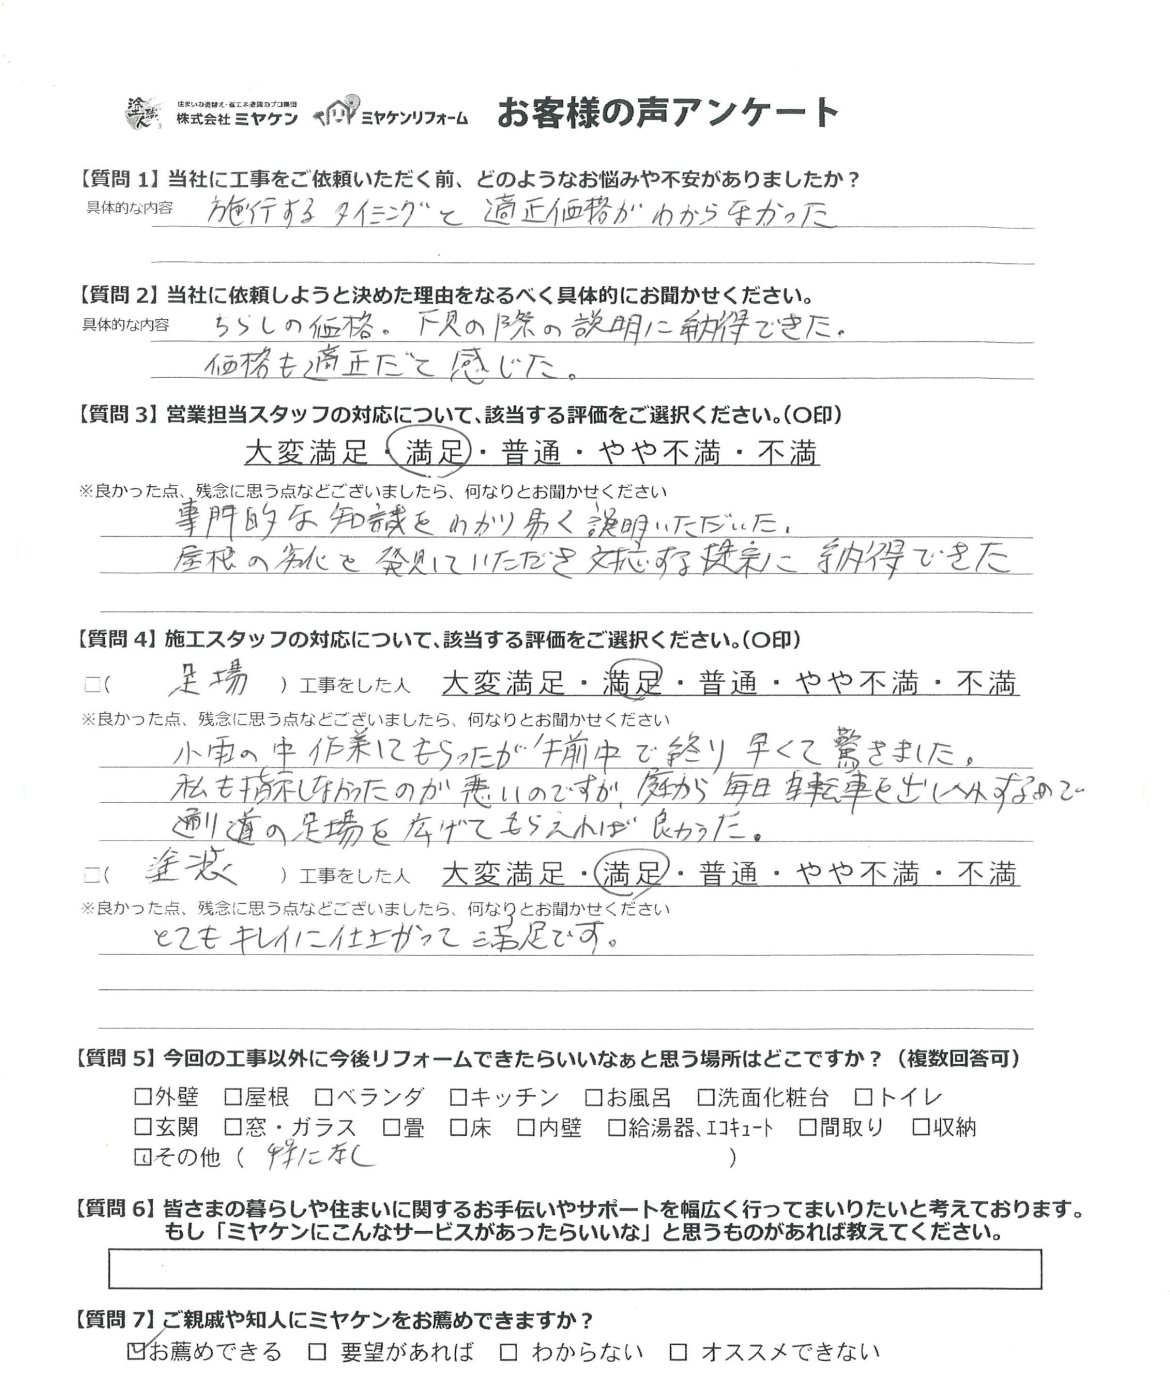 塗替人
住まいの塗替え・省エネ塗装のプロ集団
株式会社 ミヤケン ミヤケンリフォーム お客様の声アンケート
【質問 1】当社に工事をご依頼いただく前、どのようなお悩みや不安がありましたか？
具体的な内容 施行するタイミングと 適正価格がわからなかった
【質問 2】当社に依頼しようと決めた理由をなるべく具体的にお聞かせください。
具体的な内容 ちらしの価格。下見の際の説明に納得できた。
価格も適正だと感じた。
【質問 3】営業担当スタッフの対応について、該当する評価をご選択ください。（〇印）
大変満足・満足・普通・やや不満・不満
※良かった点、残念に思う点などございましたら、何なりとお聞かせください
専門的な知識をわかり易く説明いただいた。
屋根の劣化を発見していただき対応する提案に納得できた
【質問 4】施工スタッフの対応について、該当する評価をご選択ください。（〇印）
□（ 足場 ）工事をした人 大変満足・満足・普通・やや不満・不満
※良かった点、残念に思う点などございましたら、何なりとお聞かせください
小雨の中作業してもらったが午前中で終り早くて驚きました。
私も指示しなかったのが悪いのですが、庭から毎日自転車を出し入れするので
通り道の足場を広げてもらえれば良かった。
□（ 塗装 ）工事をした人 大変満足・満足・普通・やや不満・不満
※良かった点、残念に思う点などございましたら、何なりとお聞かせください
とてもキレイに仕上がって満足です。
【質問 5】今回の工事以外に今後リフォームできたらいいなぁと思う場所はどこですか？（複数回答可）
□外壁 □屋根 □ベランダ □キッチン □お風呂 □洗面化粧台 □トイレ
□玄関 □窓・ガラス □畳 □床 □内壁 □給湯器、ｴｺｷｭｰﾄ □間取り □収納
☑その他（ 特になし ）
【質問 6】皆さまの暮らしや住まいに関するお手伝いやサポートを幅広く行ってまいりたいと考えております。
もし「ミヤケンにこんなサービスがあったらいいな」と思うものがあれば教えてください。
【質問 7】ご親戚や知人にミヤケンをお薦めできますか？
☑お薦めできる □ 要望があれば □ わからない □ オススメできない